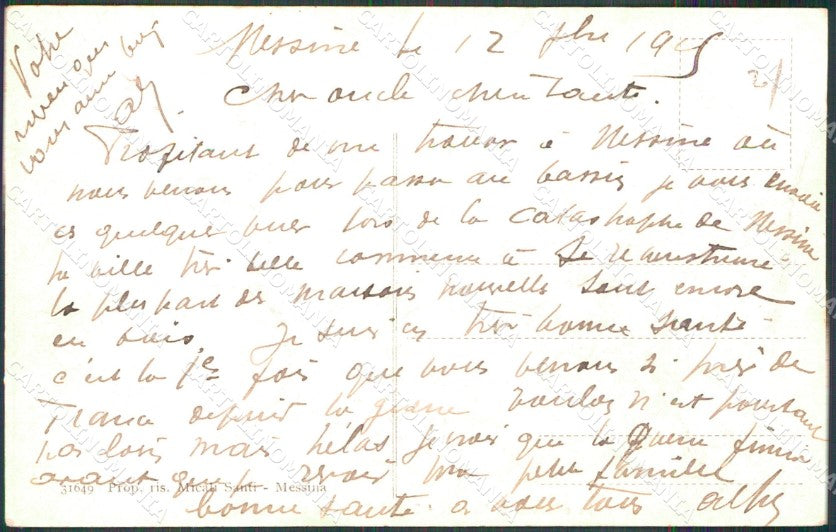 Messine le 12 9bre 1915
Cher oncle chere Tante.
Profitant de me trouver à Messine où
nous venons pour passer au bassin je vous envoie
ces quelques vues lors de la catastrophe de Messine
la ville très belle commence à se reconstruire
la plus part des maisons nouvelles sont encore
en bois. Je suis en très bonne santé
c'est la 1re fois que nous venons si près de
France depuis la guerre Toulon n'est pourtant
pas loin mais hélas je crois que la guerre finira
avant que je revoie ma petite famille
bonne santé à vous tous
Votre neveu qui
vous aime bien
31649 Prop. ris. Micali Santi - Messina
CARTOLINOMANIA